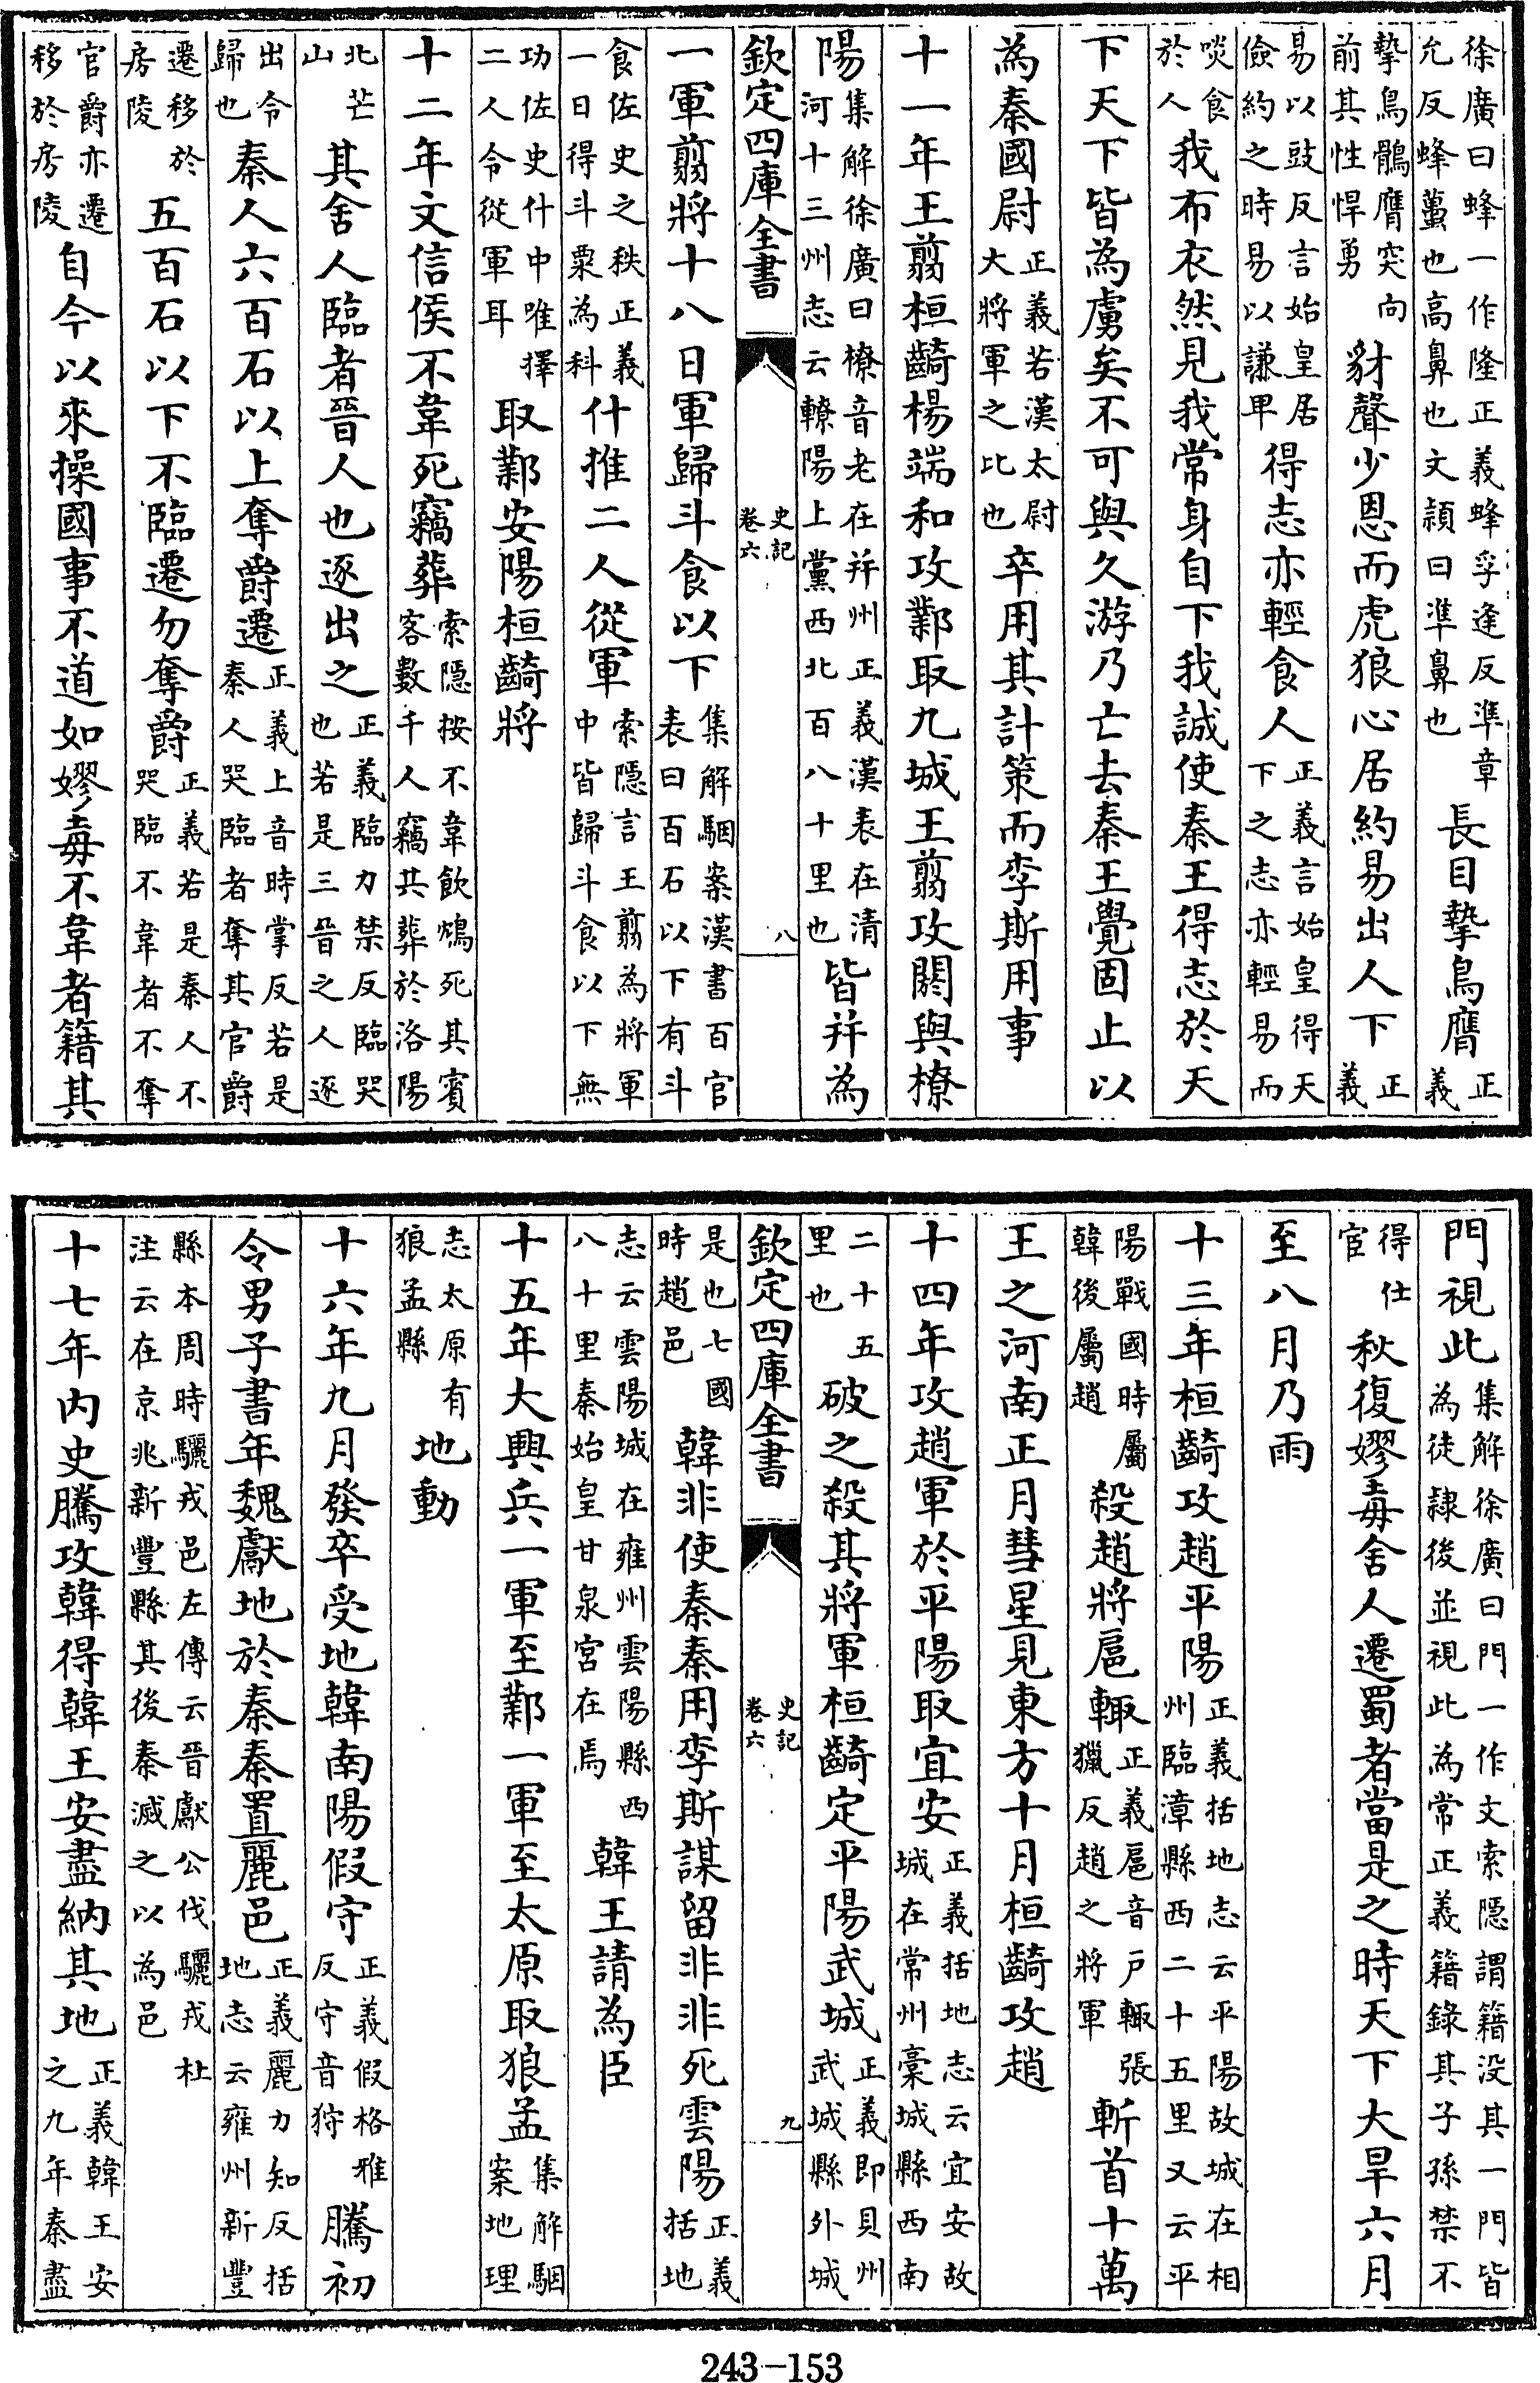 徐廣曰蜂一作隆正義蜂孚逢反準章允反蜂蠆也高鼻也文頴曰準鼻也長目摯鳥膺正義
摯鳥鶻膺突向前其性悍勇豺聲少恩而虎狼心居約易出人下正義
易以豉反言始皇居儉約之時易以謙卑得志亦輕食人正義言始皇得天下之志亦輕易而
啖食於人我布衣然見我常身自下我誠使秦王得志於天
下天下皆為虜矣不可與久游乃亡去秦王覺固止以
為秦國尉正義若漢太尉大將軍之比也卒用其計策而李斯用事
十一年王翦桓齮楊端和攻鄴取九城王翦攻閼與橑
陽集解徐廣曰橑音老在并州正義漢表在清河十三州志云轑陽上黨西北百八十里也皆并為
欽定四庫全書 史記卷六 八
一軍翦將十八日軍歸斗食以下集解駰案漢書百官表曰百石以下有斗
食佐史之秩正義一日得斗粟為科什推二人從軍索隠言王翦為將軍中皆歸斗食以下無
功佐史什中唯擇二人令從軍耳取鄴安陽桓齮將
十二年文信侯不韋死竊葬索隠按不韋飲鴆死其賓客數千人竊共葬於洛陽
北芒山其舍人臨者晉人也逐出之正義臨力禁反臨哭也若是三晉之人逐
出令歸也秦人六百石以上奪爵遷正義上音時掌反若是秦人哭臨者奪其官爵
遷移於房陵五百石以下不臨遷勿奪爵正義若是秦人不哭臨不韋者不奪
官爵亦遷移於房陵自今以來操國事不道如嫪毐不韋者籍其
門視此集解徐廣曰門一作文索隠謂籍没其一門皆為徒隸後並視此為常正義籍錄其子孫禁不
得仕宦秋復嫪毐舍人遷蜀者當是之時天下大旱六月
至八月乃雨
十三年桓齮攻趙平陽正義括地志云平陽故城在相州臨漳縣西二十五里又云平
陽戰國時屬韓後屬趙殺趙將扈輒正義扈音戸輒張獵反趙之將軍斬首十萬
王之河南正月彗星見東方十月桓齮攻趙
十四年攻趙軍於平陽取宜安正義括地志云宜安故城在常州稾城縣西南
二十五里也破之殺其將軍桓齮定平陽武城正義即貝州武城縣外城
欽定四庫全書 史記卷六 九
是也七國時趙邑韓非使秦秦用李斯謀留非非死雲陽正義括地
志云雲陽城在雍州雲陽縣西八十里秦始皇甘泉宮在焉韓王請為臣
十五年大興兵一軍至鄴一軍至太原取狼孟集解駰案地理
志太原有狼孟縣地動
十六年九月發卒受地韓南陽假守正義假格雅反守音狩騰初
令男子書年魏獻地於秦秦置麗邑正義麗力知反括地志云雍州新豐
縣本周時驪戎邑左傳云晉獻公伐驪戎杜注云在京兆新豐縣其後秦滅之以為邑
十七年内史騰攻韓得韓王安盡納其地正義韓王安之九年秦盡
243-153